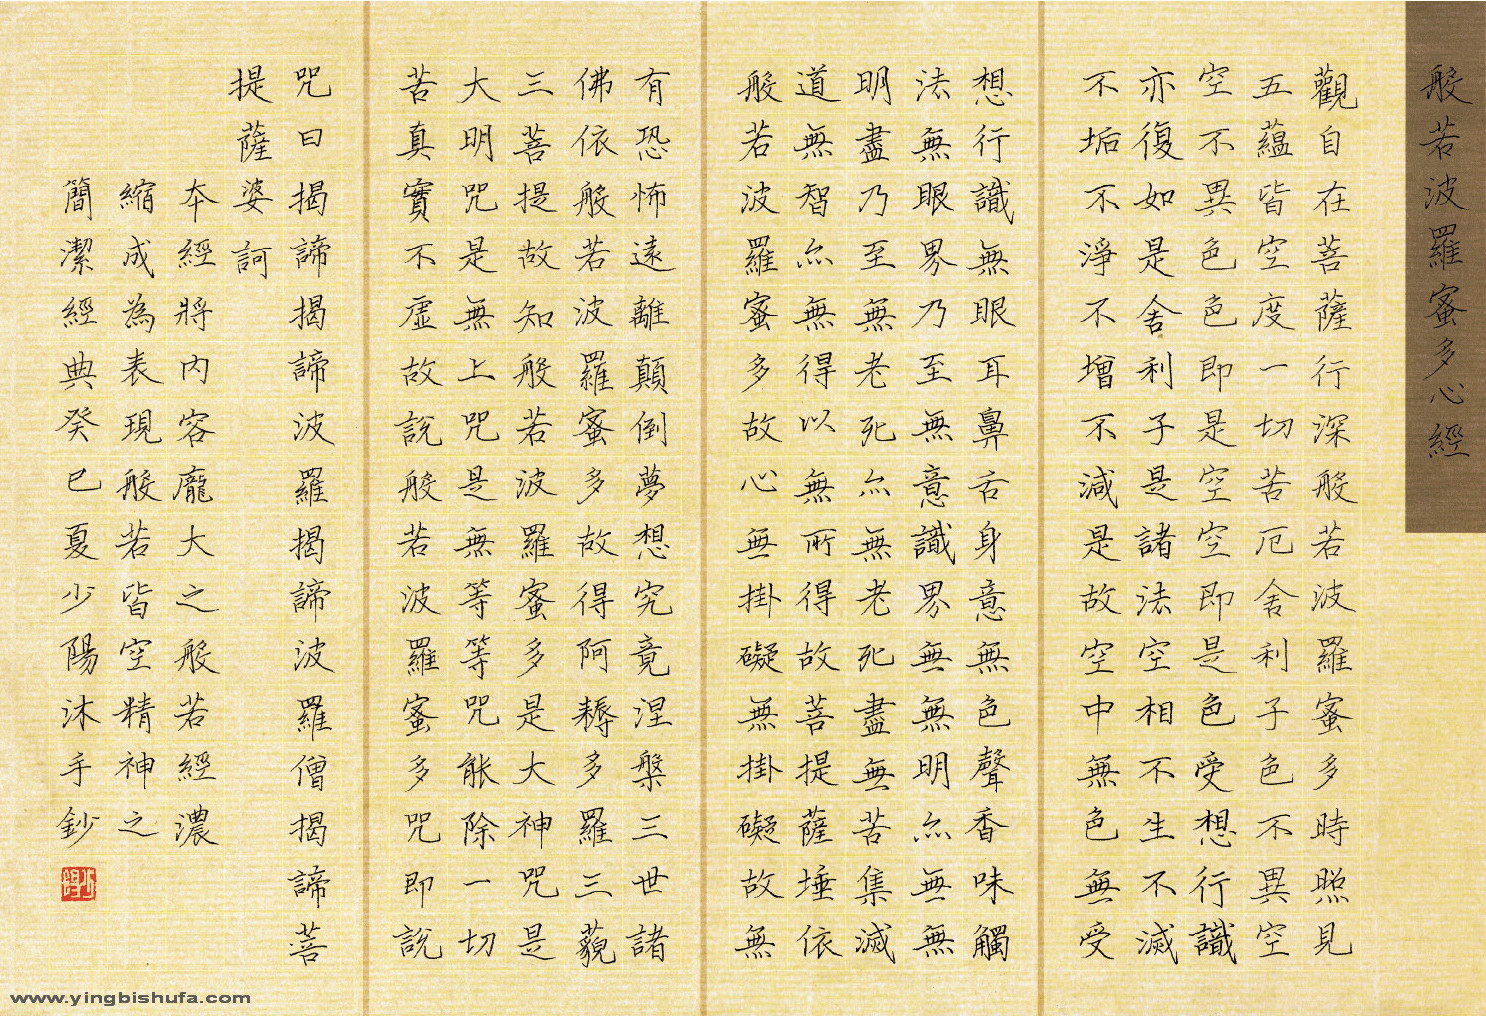 般若波羅蜜多心經
觀自在菩薩行深般若波羅蜜多時照見
五蘊皆空度一切苦厄舍利子色不異空
空不異色色即是空空即是色受想行識
亦復如是舍利子是諸法空相不生不滅
不垢不淨不增不減是故空中無色無受
想行識無眼耳鼻舌身意無色聲香味觸
法無眼界乃至無意識界無無明亦無無
明盡乃至無老死亦無老死盡無苦集滅
道無智亦無得以無所得故菩提薩埵依
般若波羅蜜多故心無掛礙無掛礙故無
有恐怖遠離顛倒夢想究竟涅槃三世諸
佛依般若波羅蜜多故得阿耨多羅三藐
三菩提故知般若波羅蜜多是大神咒是
大明咒是無上咒是無等等咒能除一切
苦真實不虛故說般若波羅蜜多咒即說
咒曰揭諦揭諦波羅揭諦波羅僧揭諦菩
提薩婆訶
本經將內容龐大之般若經濃
縮成為表現般若皆空精神之
簡潔經典癸巳夏少陽沐手鈔
www.yingbishufa.com